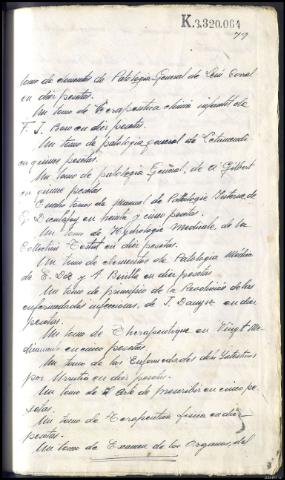 K.3.320.064
79
tomo de elementos de Patologia General de Luis Corral
en diez pesetas.
Un tomo de Terapeutica clinica infantil de
en diez pesetas.
Un tomo de patologia general de
en quince pesetas.
Un tomo de patologia General, de A Gilbert
en quince pesetas
Cuatro tomos de manual de Patologia Interna, de
G. Dieulafoy en treinta y cinco pesetas.
Un tomo de Hydrologie Medicale, de la
Collection Testut en diez pesetas.
Un tomo de elementos de Patologia Médica
de E. y en diez pesetas
Un tomo de principios de la de las
enfermedades infecciosas, de J. Danysz en diez
pesetas.
Un tomo de Therapeutique en Vingt Me-
dicaments en cinco pesetas
Un tomo de las Enfermedades del Intestino
por Urrutia en diez pesetas.
Un tomo de El Arte de prescribir en cinco pe-
setas.
Un tomo de Terapeutica fisica en diez
pesetas.
Un tomo de Examen de los Organos, del